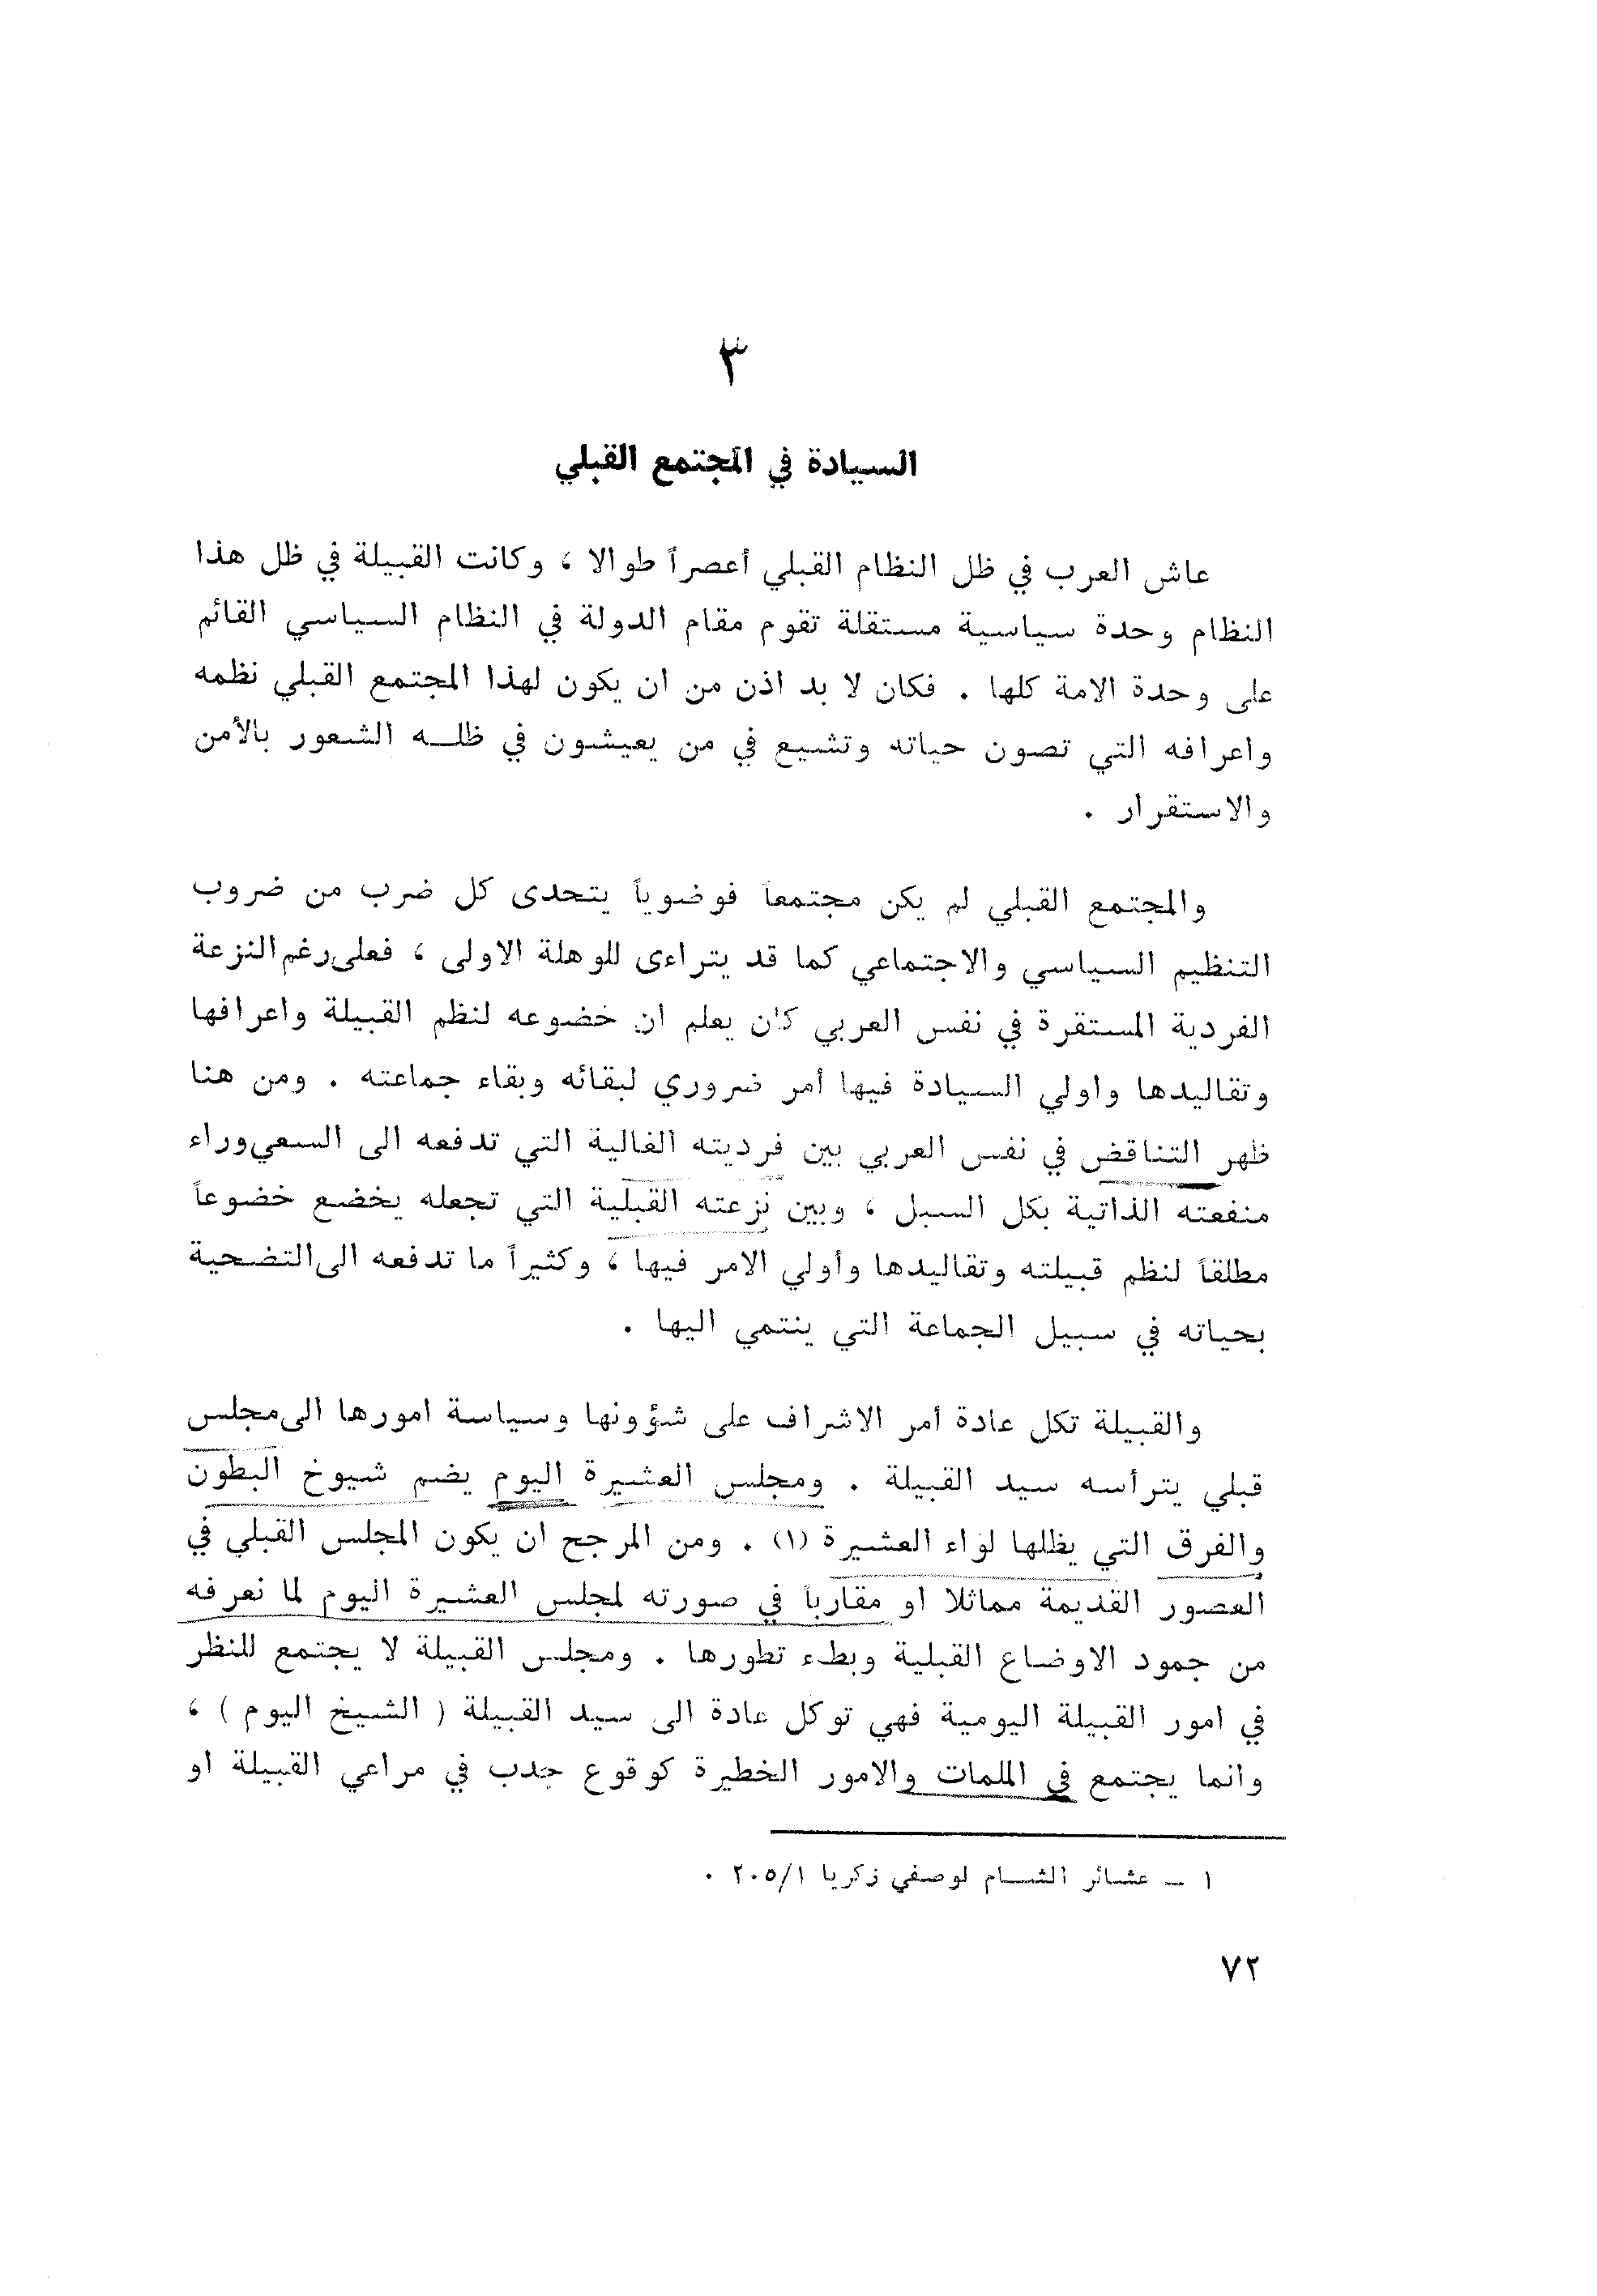 ٣
السيادة في المجتمع القبلي
عاش العرب في ظل النظام القبلي أعصراً طوالا ، وكانت القبيلة في ظل هذا
النظام وحدة سياسية مستقلة تقوم مقام الدولة في النظام السياسي القائم
على وحدة الامة كلها . فكان لا بد اذن من ان يكون لهذا المجتمع القبلي نظمه
واعرافه التي تصون حياته وتشيع في من يعيشون في ظلــه الشعور بالأمن
والاستقرار .
والمجتمع القبلي لم يكن مجتمعاً فوضوياً يتحدى كل ضرب من ضروب
التنظيم السياسي والاجتماعي كما قد يتراءى للوهلة الاولى ، فعلى رغم النزعة
الفردية المستقرة في نفس العربي كان يعلم ان خضوعه لنظم القبيلة واعرافها
وتقاليدها واولي السيادة فيها أمر ضروري لبقائه وبقاء جماعته . ومن هنا
ظهر التناقض في نفس العربي بين فرديته الغالية التي تدفعه الى السعي وراء
منفعته الذاتية بكل السبل ، وبين نزعته القبلية التي تجعله يخضع خضوعاً
مطلقاً لنظم قبيلته وتقاليدها وأولي الامر فيها ، وكثيراً ما تدفعه الى التضحية
بحياته في سبيل الجماعة التي ينتمي اليها .
والقبيلة تكل عادة أمر الاشراف على شؤونها وسياسة امورها الى مجلس
قبلي يترأسه سيد القبيلة . ومجلس العشيرة اليوم يضم شيوخ البطون
والفرق التي يظلها لواء العشيرة (١) . ومن المرجح ان يكون المجلس القبلي في
العصور القديمة مماثلا او مقارباً في صورته لمجلس العشيرة اليوم لما نعرفه
من جمود الاوضاع القبلية وبطء تطورها . ومجلس القبيلة لا يجتمع للنظر
في امور القبيلة اليومية فهي توكل عادة الى سيد القبيلة ( الشيخ اليوم ) ،
وانما يجتمع في الملمات والامور الخطيرة كوقوع جدب في مراعي القبيلة او
١ – عشائر الشــام لوصفي زكريا ٢٠٥/١ .
٧٢